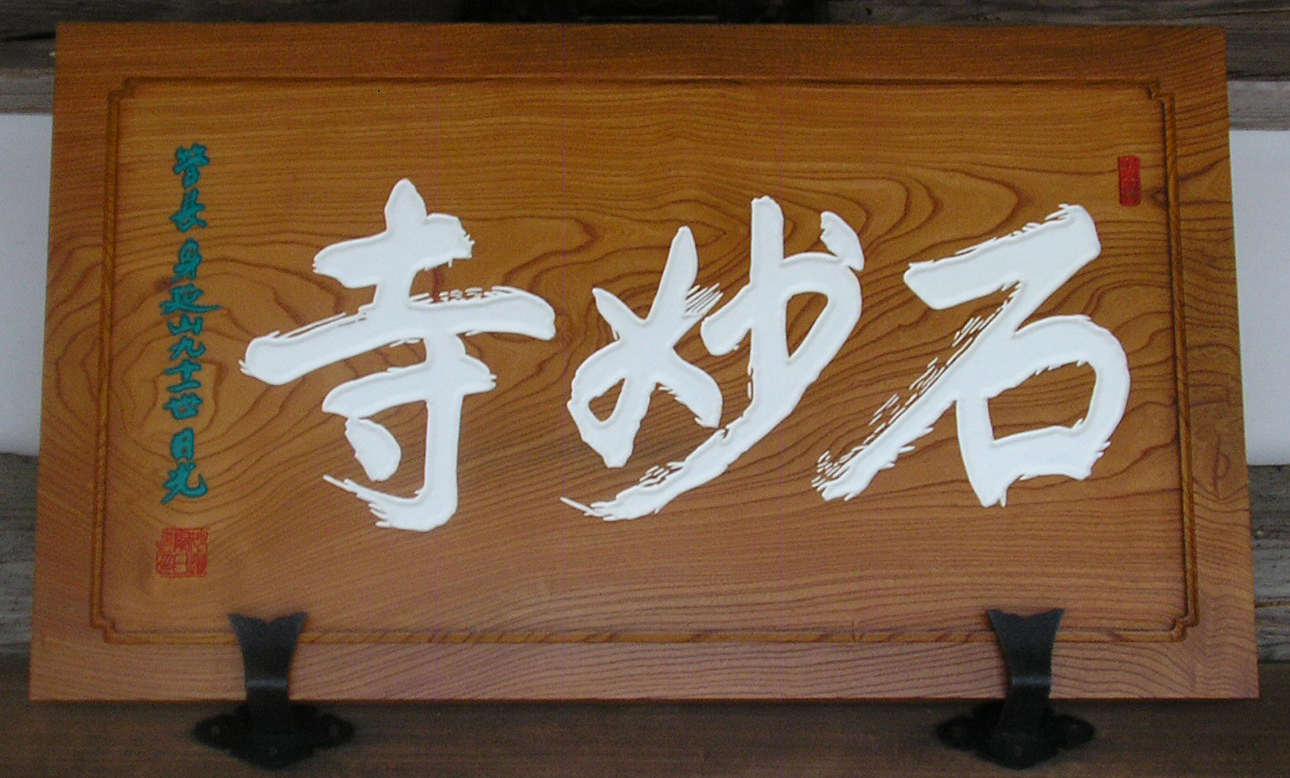 石妙寺
管長身延山九十一世日光